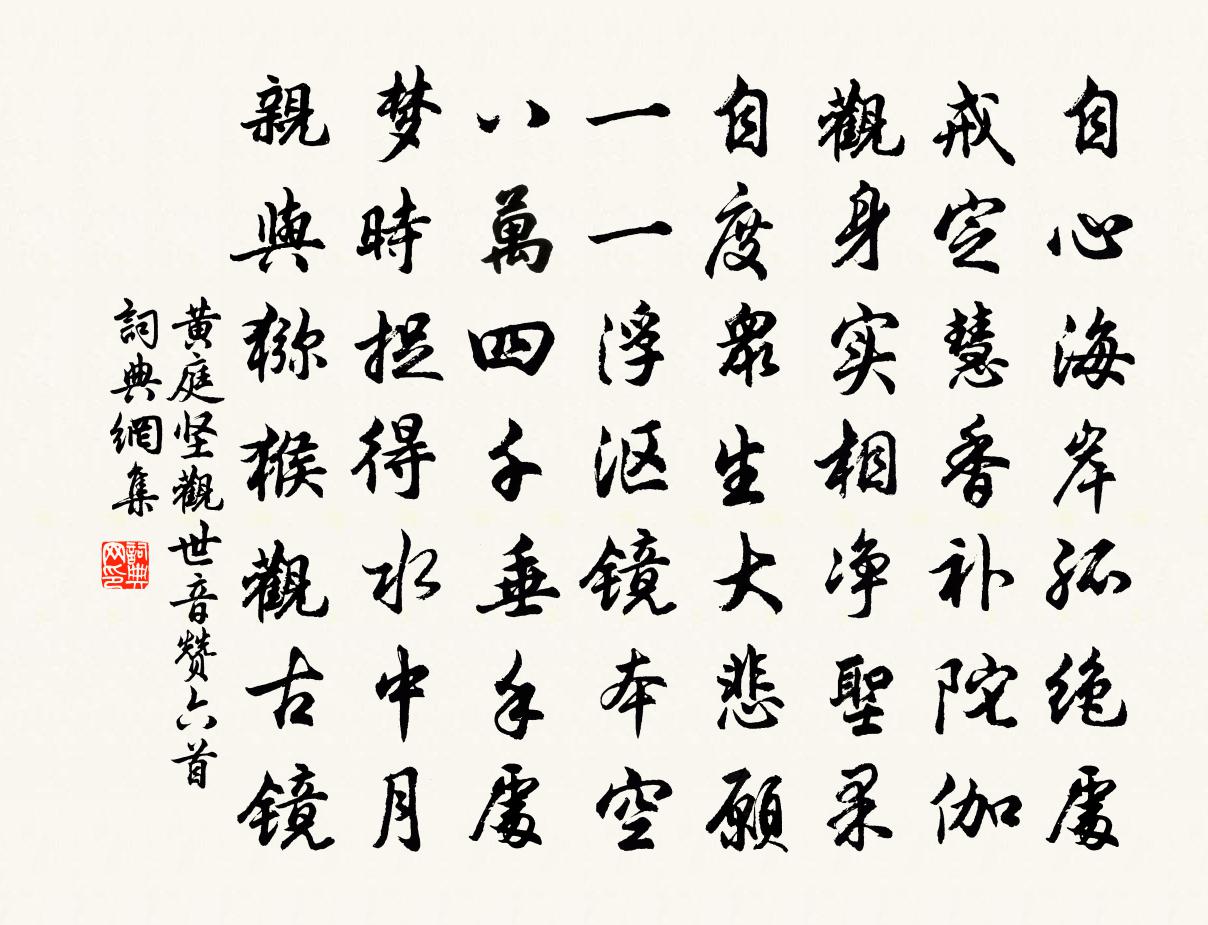 自心海岸孤绝處
戒定慧香补陀伽
觀身实相净聖果
自度眾生大悲願
一一浮沤镜本空
八萬四千垂手處
梦時捉得水中月
親與猕猴觀古镜
黄庭坚觀世音赞六首
詞典網集
詞典网印